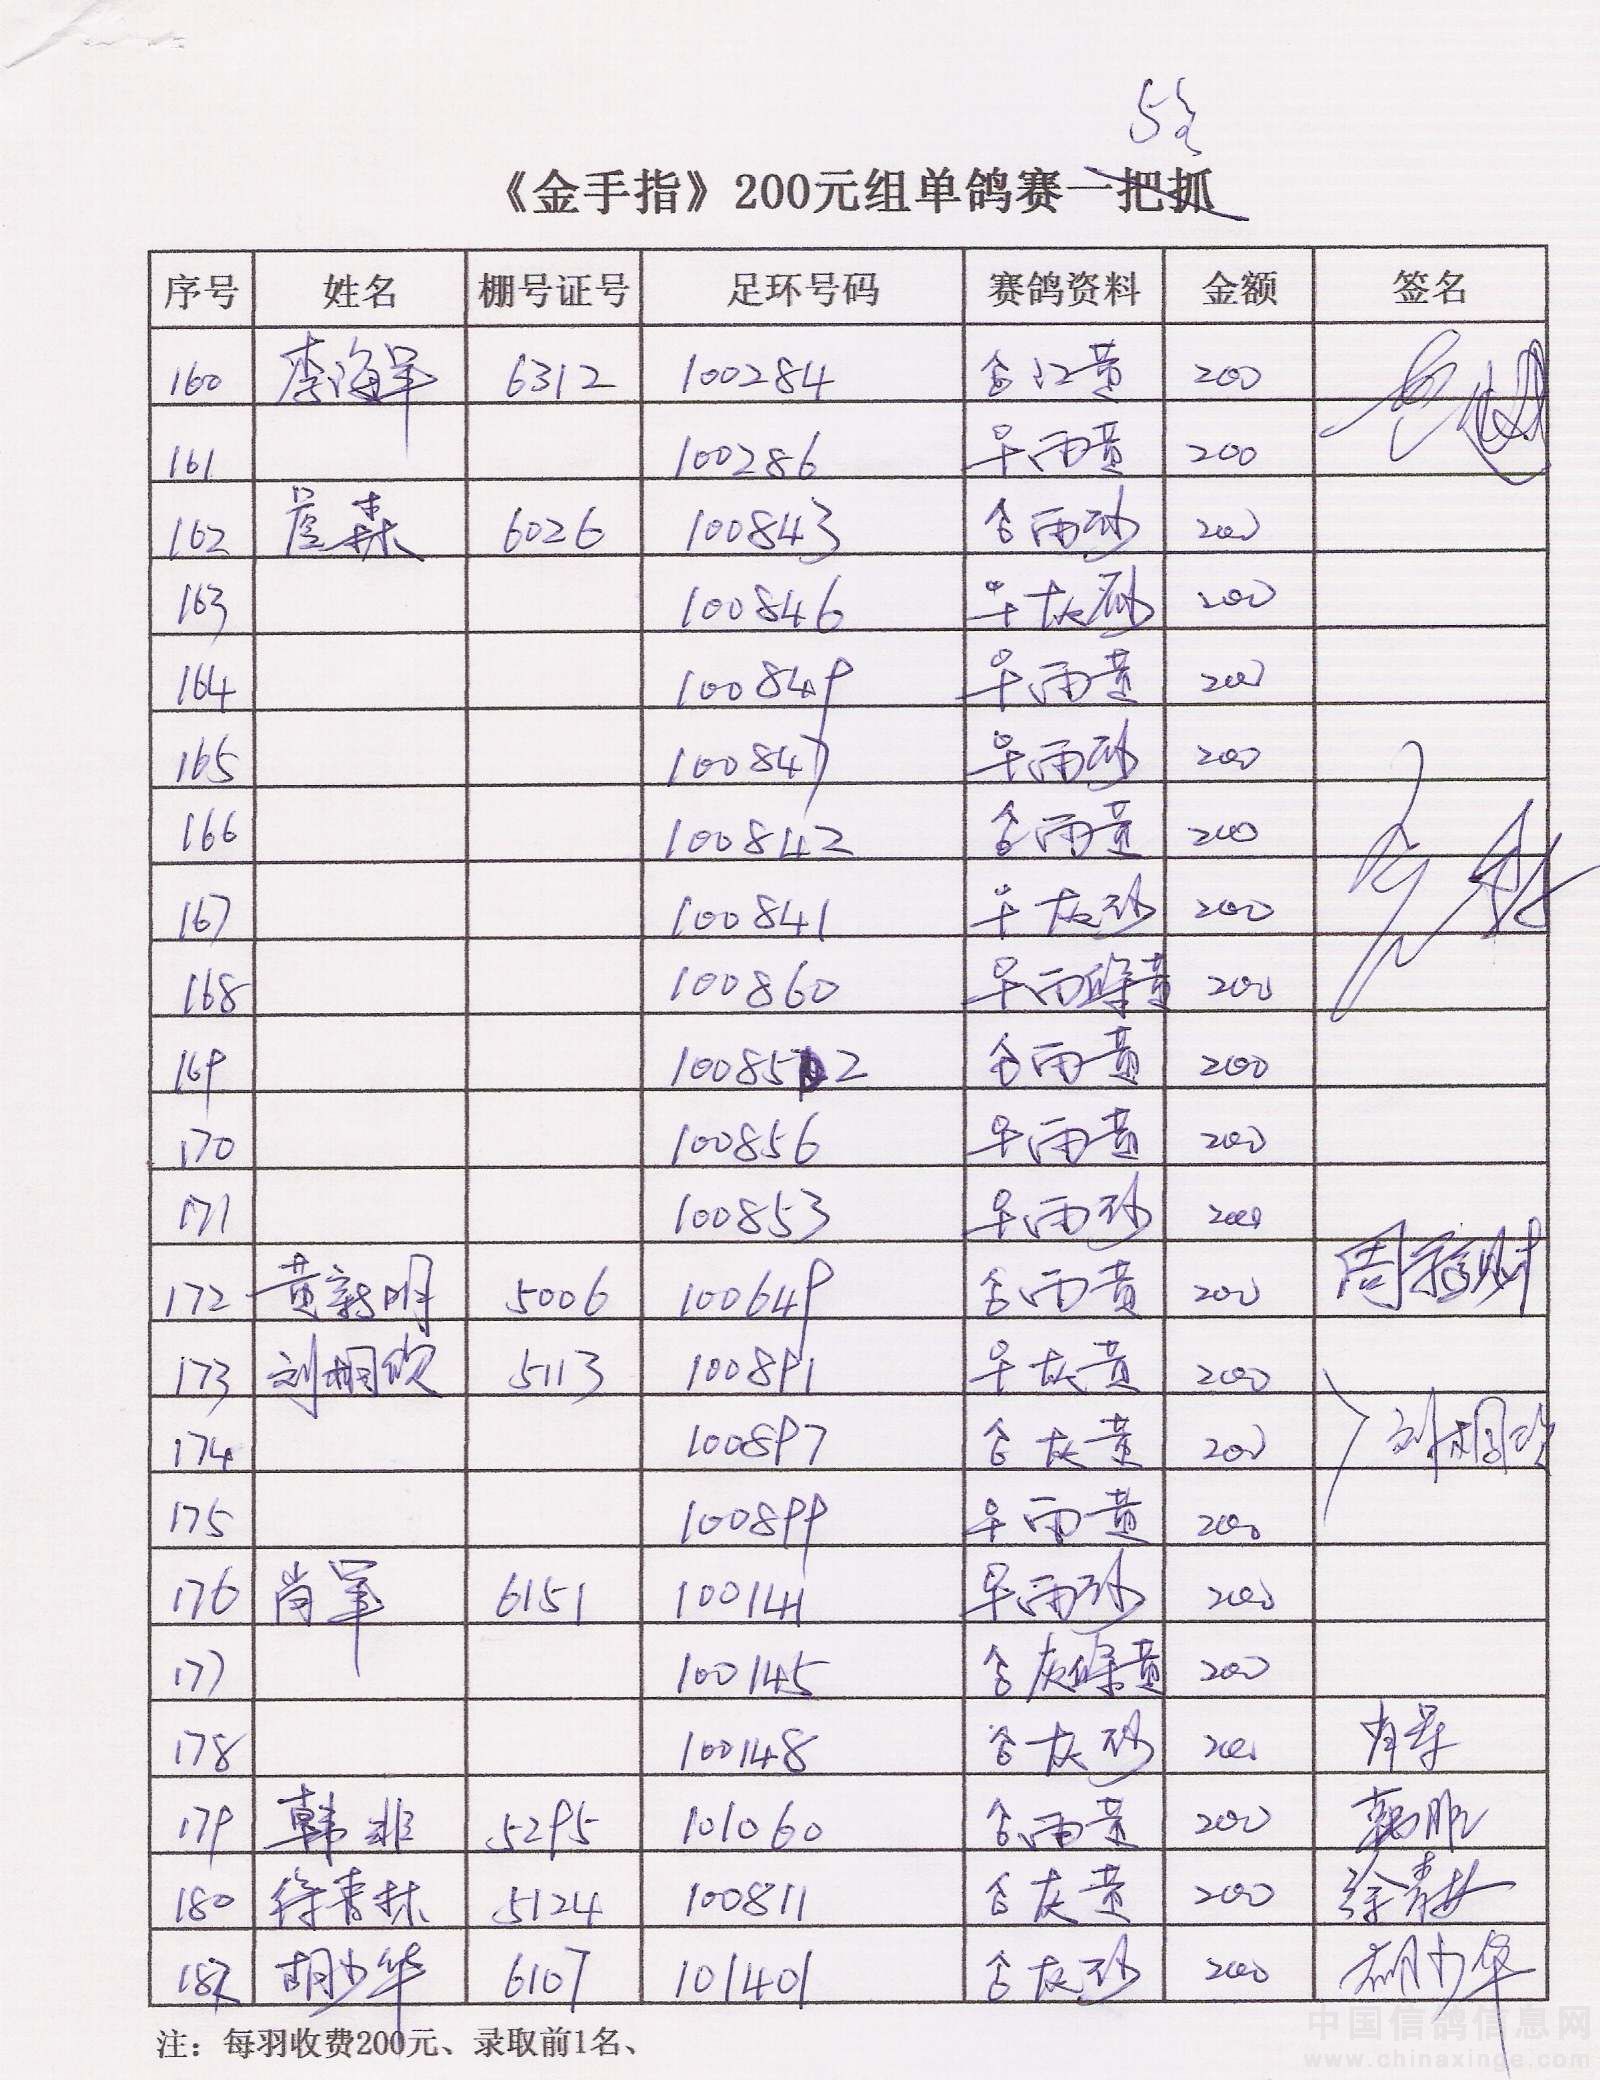 《金手指》200元组单鸽赛一把抓
序号 姓名 棚号证号 足环号码 赛鸽资料 金额 签名
160 李海军 6312 100284 200
161 100286 雨黄 200
162 森 6026 100843 雨砂 200
163 100846 灰砂 200
164 100849 雨黄 200
165 100847 雨砂 200
166 100842 雨黄 200
167 100841 灰砂 200
168 100860 雨條黄 200
169 100852 雨黄 200
170 100856 雨黄 200
171 100853 雨砂 200
172 黄新明 5006 100649 雨黄 200
173 刘桐欣 5113 100891 灰黄 200
174 100897 灰黄 200 刘桐欣
175 100899 雨黄 200
176 肖军 6151 100141 雨砂 200
177 100145 灰條黄 200
178 100148 灰砂 200 肖军
179 韩非 5295 101060 雨黄 200
180 徐青林 5124 100811 灰黄 200
胡少华 6107 101401 灰砂 200 胡少华
注：每羽收费200元、录取前1名、
中国信鸽信息网
www.chinaxinge.com